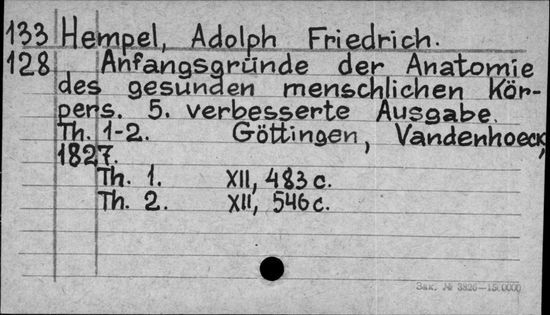 133 Hempel, Adolph Friedrich.
128 Anfangsgründe der Anatomie
des gesunden menschlichen Kör-
pers. 5. verbesserte Ausgabe.
Th. 1-2. Göttingen, Vandenhoeck,
1827.
Th. 1. XII, 483 с.
Th. 2. XII, 546 с.
Зак. № 3826—15.0000